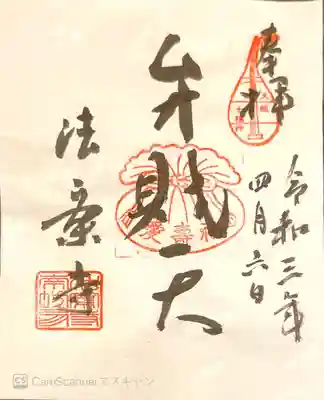 奉拝
令和三年
四月六日
弁財天
法案寺
CS CamScannerでスキャン